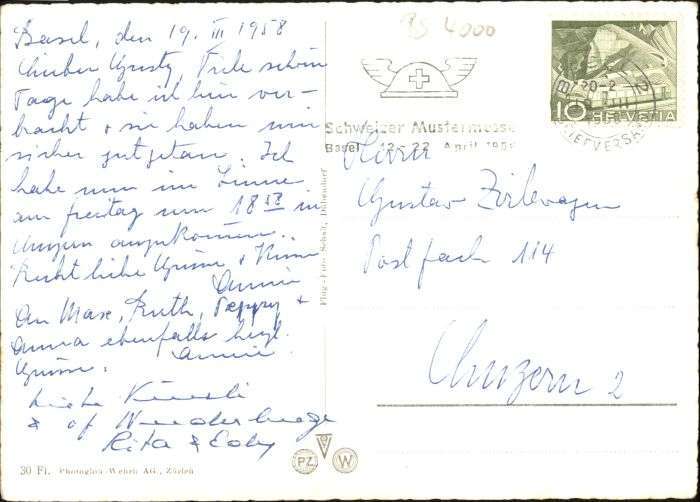 Basel, den 19. III 1958
Lieber Gusty, Viele schöne
Tage habe ich hier ver-
bracht + sie haben mir
sicher gutgetan. Ich
habe nun im Sinne
am Freitag um 18 in
Luzern anzukommen.
Recht liebe Grüsse + Küsse
Annie
An Max, Ruth, Peppy +
Anna ebenfalls herzl.
Grüsse. Annie
Liebe Küssli
& auf Wiederluege
Rita & Edy
30 Fl. Photoglos-Wehrli AG., Zürich
Flug-Foto Schuh, Dübendorf
PZ W
BS 4000
Schweizer Mustermesse
Basel 12-22 April 1958
10 HELVETIA
BRIEFVERSAND
Herrn
Gustav
Postfach 114
Luzern 2